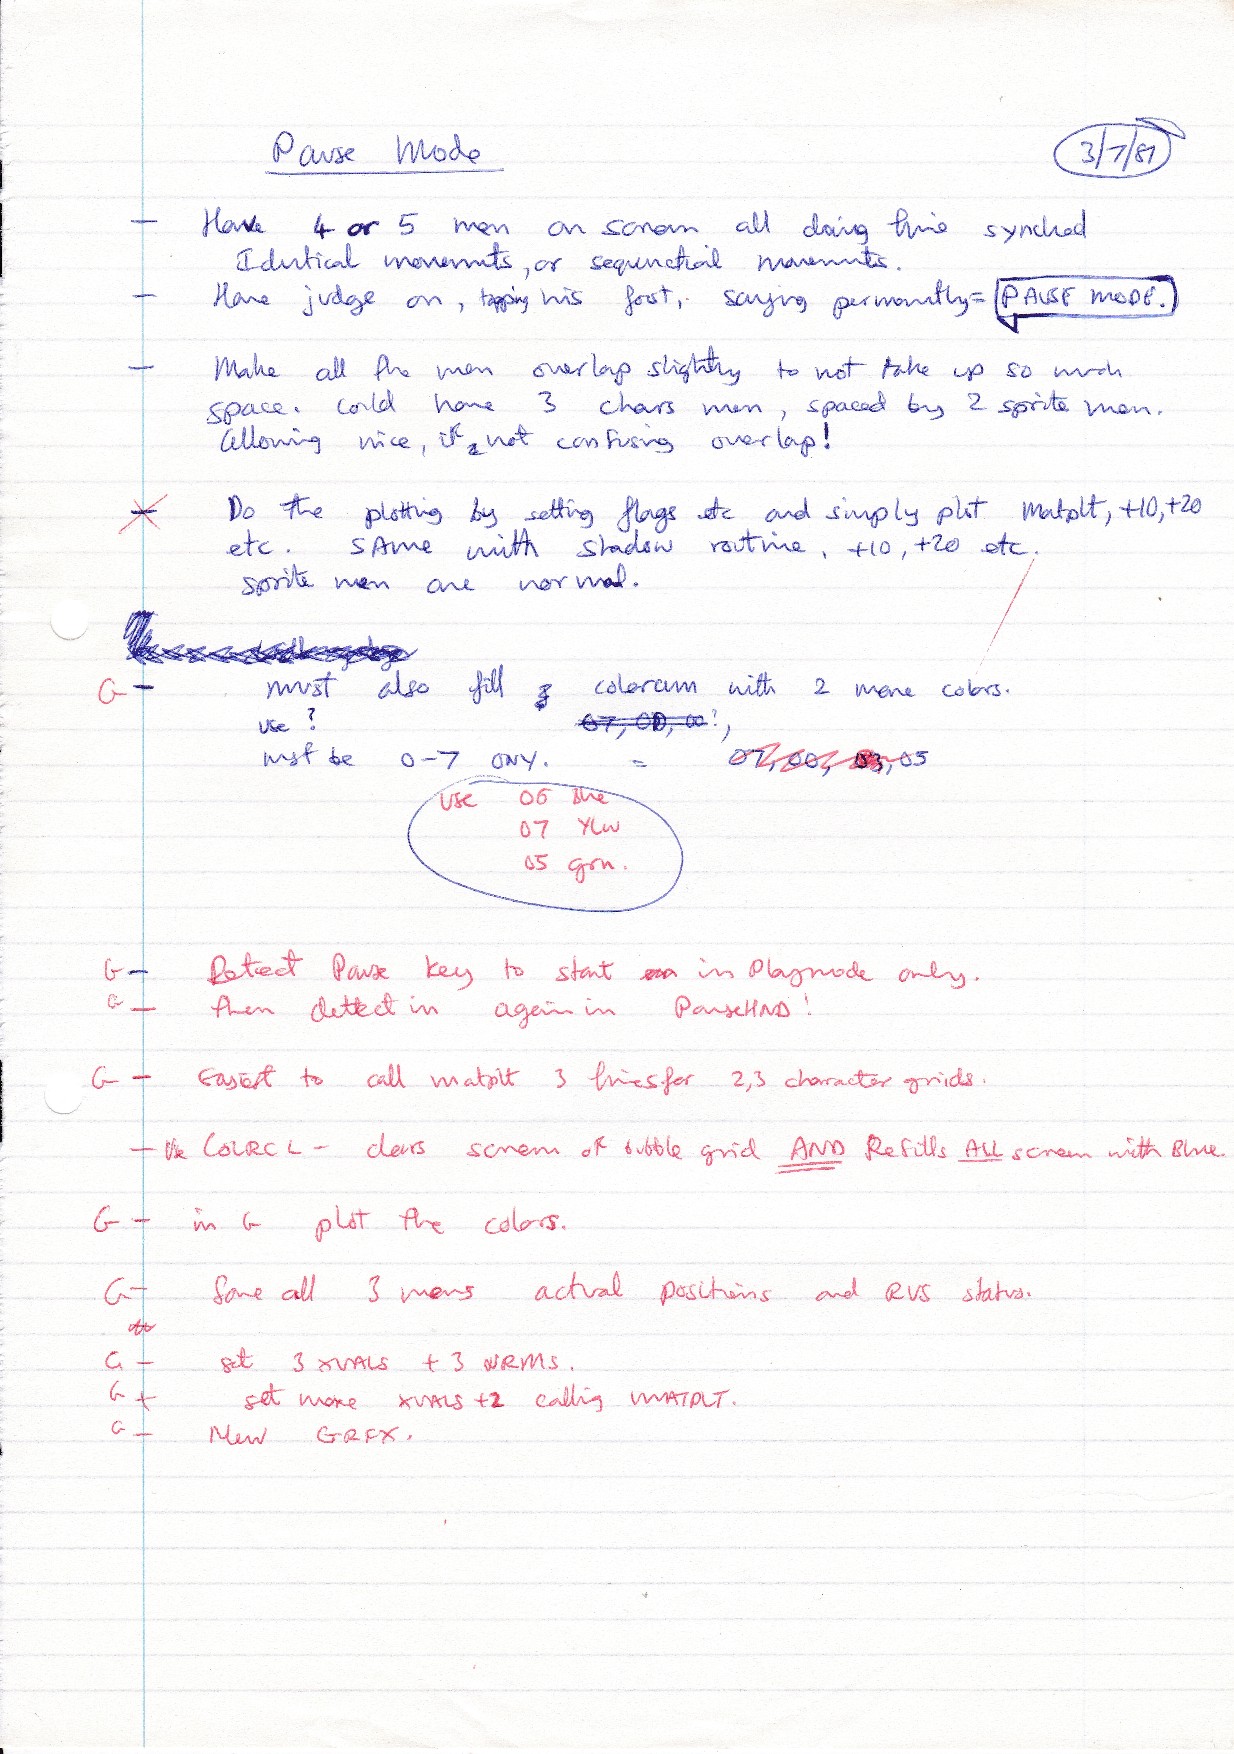 Pause Mode
3/7/87
- Have 4 or 5 men on screen all doing time synched
Identical movements, or sequnctial movemnts.
- Have judge on, tapping his foot, saying permanently = PAUSE MODE.
- Make all the men overlap slightly to not take up so much
space. Could have 3 chars men, spaced by 2 sprite men.
Allowing nice, if not confusing overlap!
- Do the plotting by setting flags etc and simply plot Matplt, +10, +20
etc. SAme with shadow routine, +10, +20 etc.
sprite men are normal.
G - must also fill coloram with 2 more colors.
use ? 07, 0D, 00?,
must be 0-7 ONY. = 07, 00, 03, 05
use 06 Blue
07 YLW
05 grn.
G - Detect Pause key to start in Playmode only.
G - then detect in again in PauseHND!
G - Easest to call matplt 3 times for 2, 3 character grids.
- Use COLRCL - clears screen of bubble grid AND Refills ALL screen with Blue.
G - in G plot the colors.
G - Save all 3 mens actual positions and RVS status.
G - set 3 XVALS + 3 NRMS.
G + set more XVALS +2 calling MATPLT.
G - New GRFX.